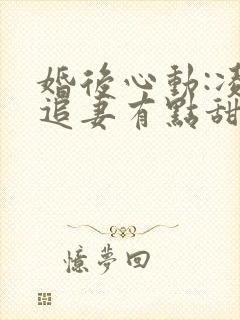 婚後心動:凌
追妻有點甜
憶夢回